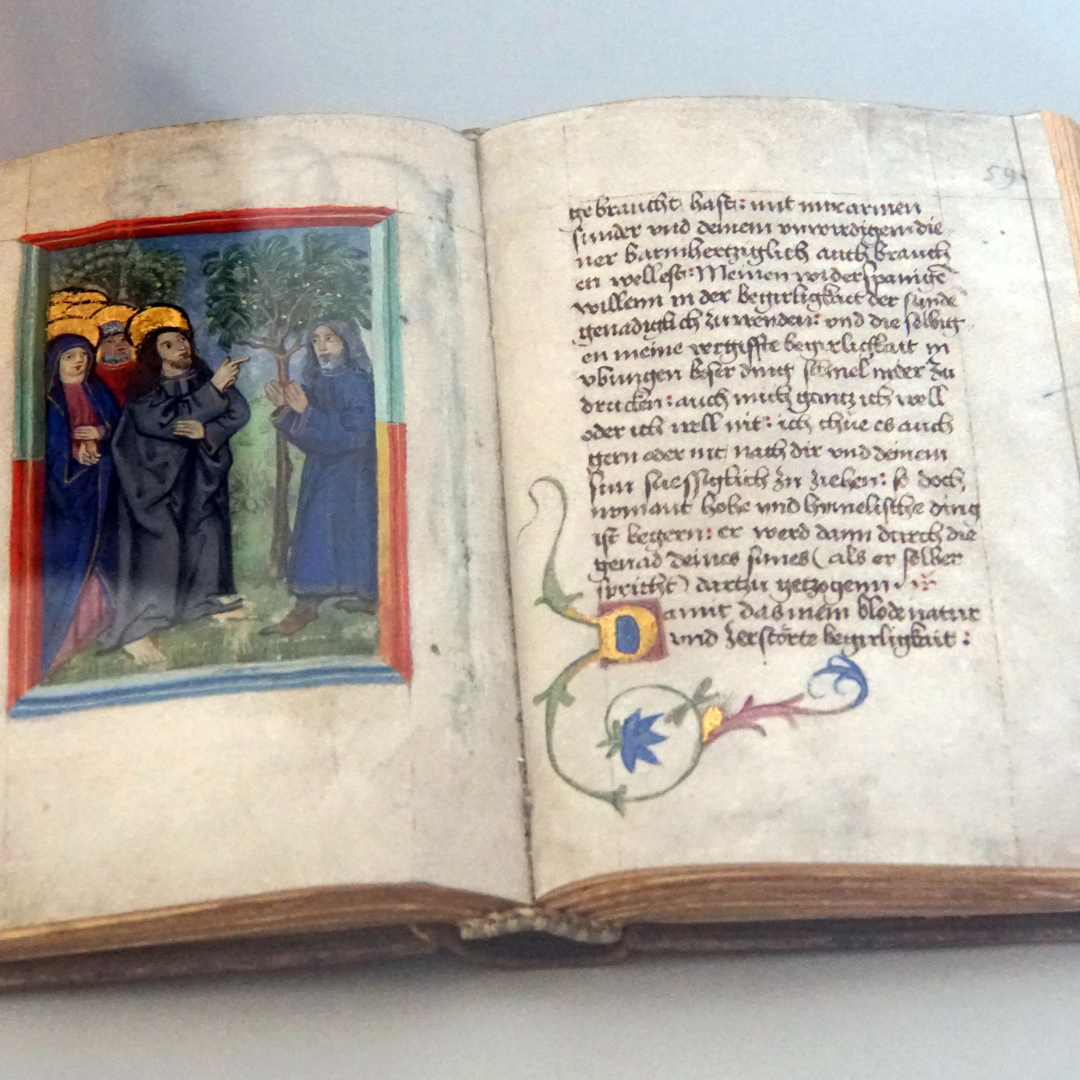 59
gebraucht hast: mit mir armen
sunder vnd deinem vnwirdigem die„
ner barmhertziglich auch brauch
en wellest: Meinen widerspanigē
willenn in der begirligkait der sunde
genadiglich zu wenden: vnd die selbig„
en meine vergiffte begirlichkait in
vbungen beser ding schnel nider zu
drucken: auch mich gantz ich well
oder ich well nit: ich thue es auch
gern oder nit, nach dir vnd deinem
sun suessiglich zu ziehen: so doch
niemant hohe vnd himelische ding
ist begern: er werd dann durch die
genad deines sunes (als er selber
spricht) dartzu getzogenn
Damit das mein blode natur
vnd zerstörte begirligkait :